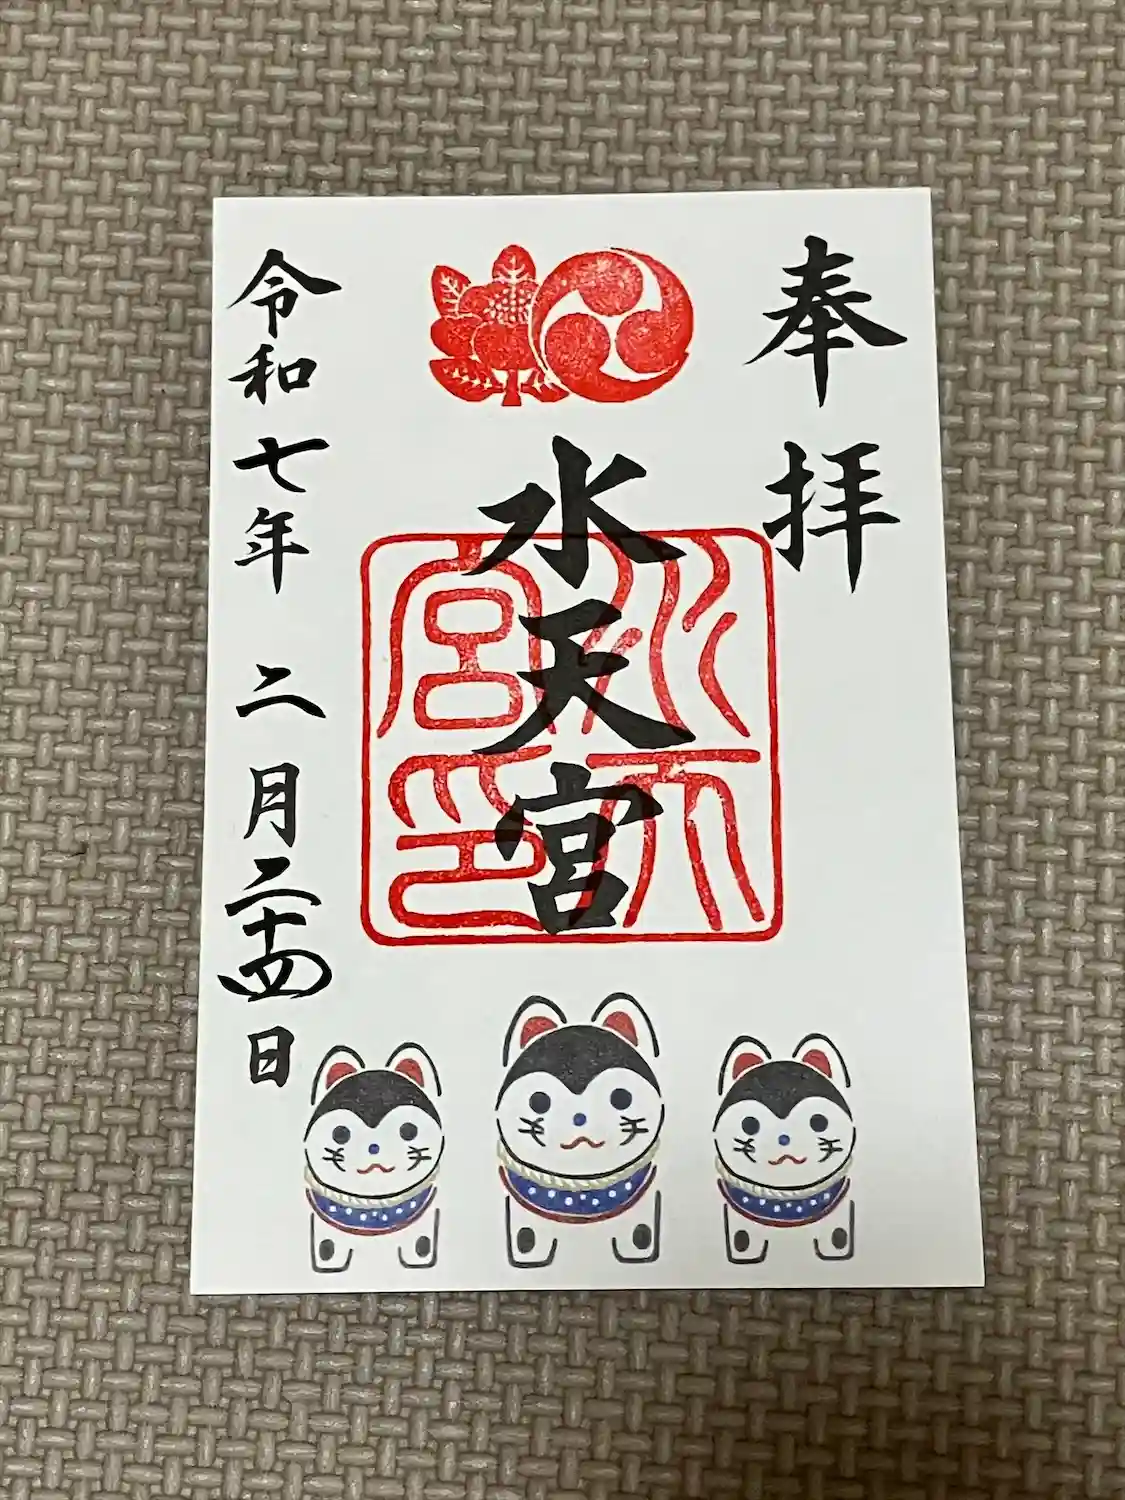 奉拝
水天宮
水天宮印
令和七年 二月二十四日